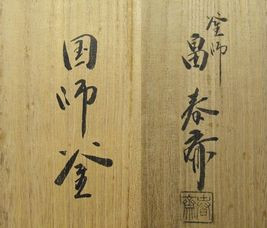 国師釜
釜師
畠春斎
春齋